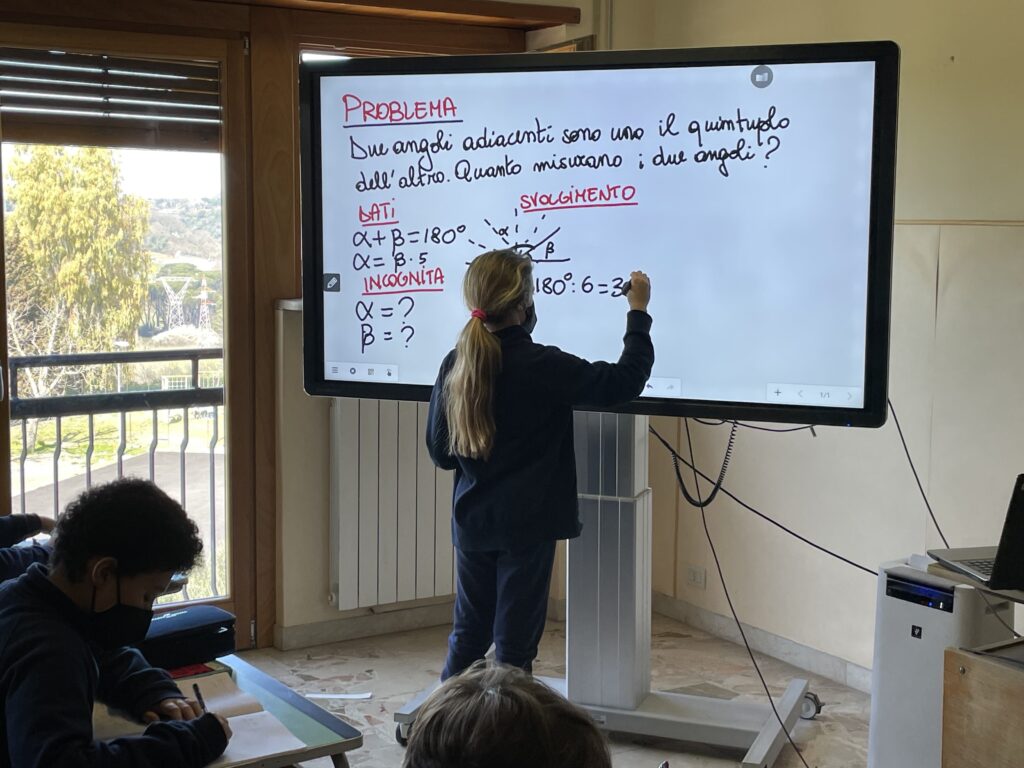 PROBLEMA
Due angoli adiacenti sono uno il quintuplo
dell'altro. Quanto misurano i due angoli?
DATI
α+β=180°
α=β·5
INCOGNITA
α=?
β=?
SVOLGIMENTO
α
β
180°:6=3
1/1